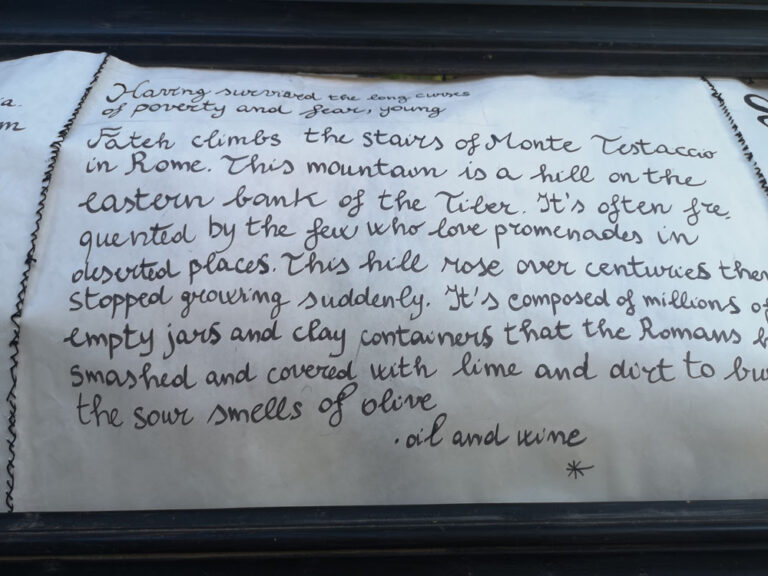 Having survived the long curses
of poverty and fear, young
Fateh climbs the stairs of Monte Testaccio
in Rome. This mountain is a hill on the
eastern bank of the Tiber. It's often fre,
quented by the few who love promenades in
deserted places. This hill rose over centuries then
stopped growing suddenly. It's composed of millions of
empty jars and clay containers that the Romans
smashed and covered with lime and dirt to bu
the sour smells of olive
.oil and wine
*